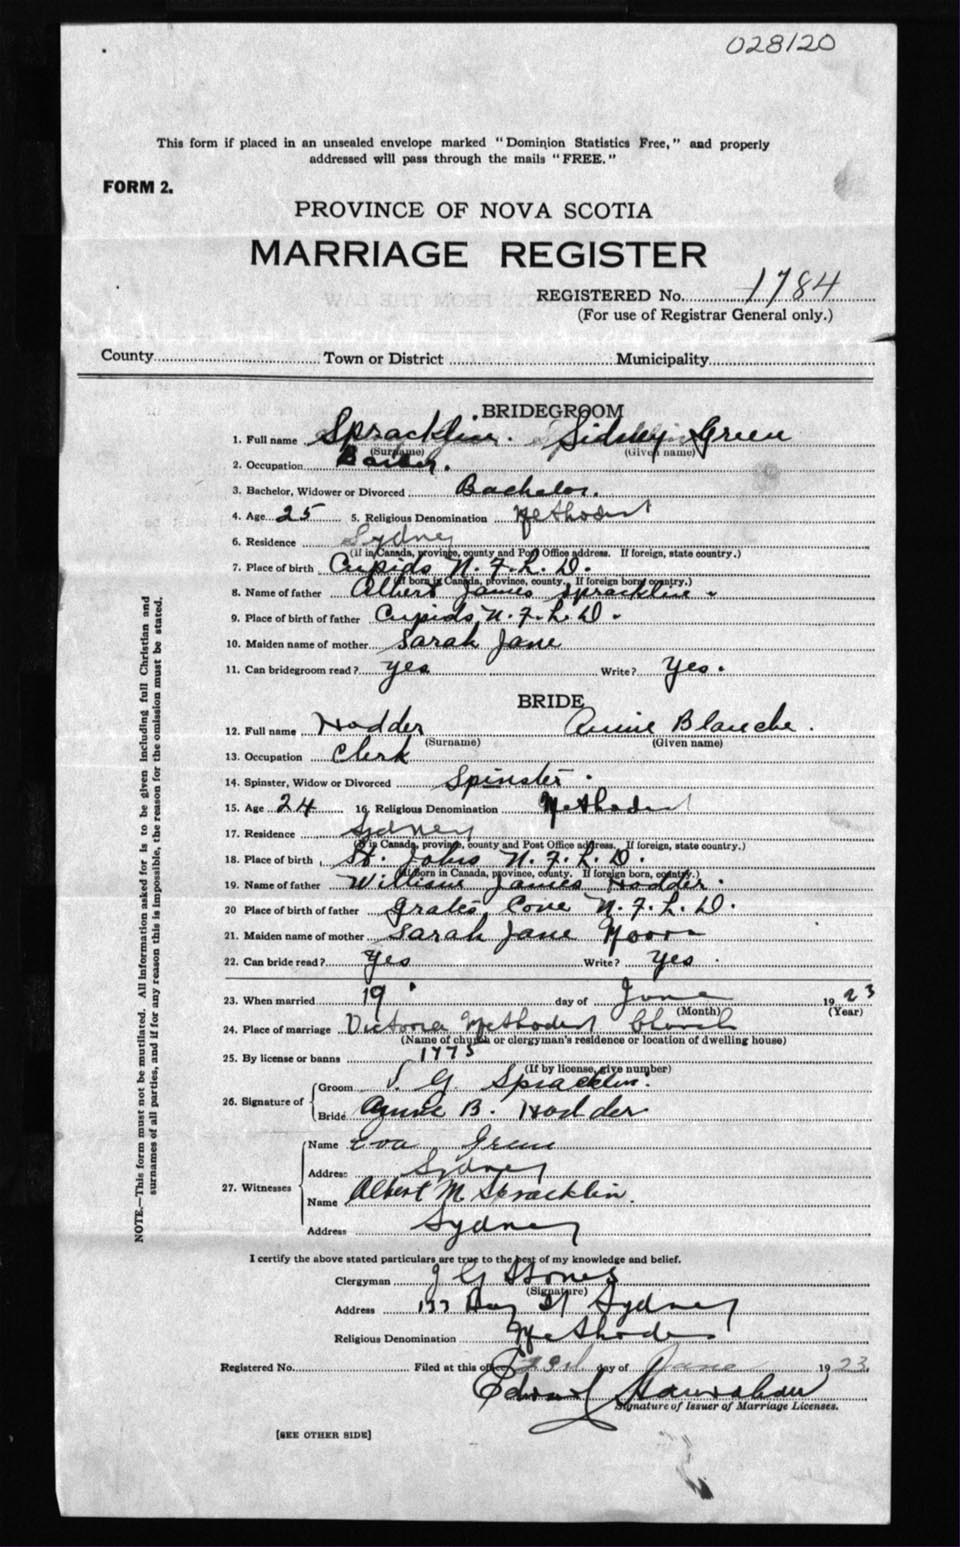 028120
This form if placed in an unsealed envelope marked "Dominion Statistics Free," and properly
addressed will pass through the mails "FREE."
FORM 2.
PROVINCE OF NOVA SCOTIA
MARRIAGE REGISTER
REGISTERED No. 1784
(For use of Registrar General only.)
County Town or District Municipality
BRIDEGROOM
1. Full name Spracklin. Sidney Green
(Surname) (Given name)
2. Occupation
3. Bachelor, Widower or Divorced Bachelor.
4. Age 25 5. Religious Denomination Methodist
6. Residence Sydney
(If in Canada, province, county and Post Office address. If foreign, state country.)
7. Place of birth Cupids N.F.L.D.
(If born in Canada, province, county. If foreign born, country.)
8. Name of father Albert James Spracklin.
9. Place of birth of father Cupids, N.F.L.D.
10. Maiden name of mother Sarah Jane
11. Can bridegroom read? yes Write? Yes.
BRIDE
12. Full name Hodder Annie Blanche.
(Surname) (Given name)
13. Occupation Clerk
14. Spinster, Widow or Divorced Spinster.
15. Age 24 16. Religious Denomination Methodist
17. Residence Sydney
(If in Canada, province, county and Post Office address. If foreign, state country.)
18. Place of birth St. Johns N.F.L.D.
(If born in Canada, province, county. If foreign born, country.)
19. Name of father William James Hodder.
20 Place of birth of father Grates Cove N.F.L.D.
21. Maiden name of mother Sarah Jane
22. Can bride read? Yes Write? Yes.
23. When married 19 day of June 1923
(Month) (Year)
24. Place of marriage Victoria Methodist Church
(Name of church or clergyman's residence or location of dwelling house)
25. By license or banns 1775
(If by license, give number)
26. Signature of Groom S. G. Spracklin.
Bride Annie B. Hodder
27. Witnesses Name Eva Green
Address Sydney
Name Albert M. Spracklin.
Address Sydney
I certify the above stated particulars are true to the best of my knowledge and belief.
Clergyman J G Stones
(Signature)
Address St Sydney
Religious Denomination Methodist
Registered No. Filed at this office 23rd day of June 1923.
Edward
Signature of Issuer of Marriage Licenses.
[SEE OTHER SIDE]
NOTE.—This form must not be mutilated. All information asked for is to be given including full Christian and
surnames of all parties, and if for any reason this is impossible, the reason for the omission must be stated.